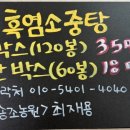 흑염소중탕
박스(120봉) 35만
반박스(60봉) 18만
연락처 010-5401-4040
송정농원> 최재용